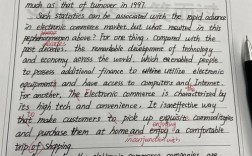 much as that of turnover in 1997.
Such statistics can be associated with the rapid advance
in electronic commerce but what resulted in this
phenomenon above? For one thing, compared with the
past decades, the remarkable development of technology
and economy across the world, which enabled people
to possess additional finance to utilise electronic
equipments and have access to computers and Internet.
For another, the Electronic commerce is characterised by
its high tech and convenience. It is effective way
that make customers to pick up exquisite commodities
and purchase them at home and enjoy a comfortable
trip of shopping.
commerce companies are